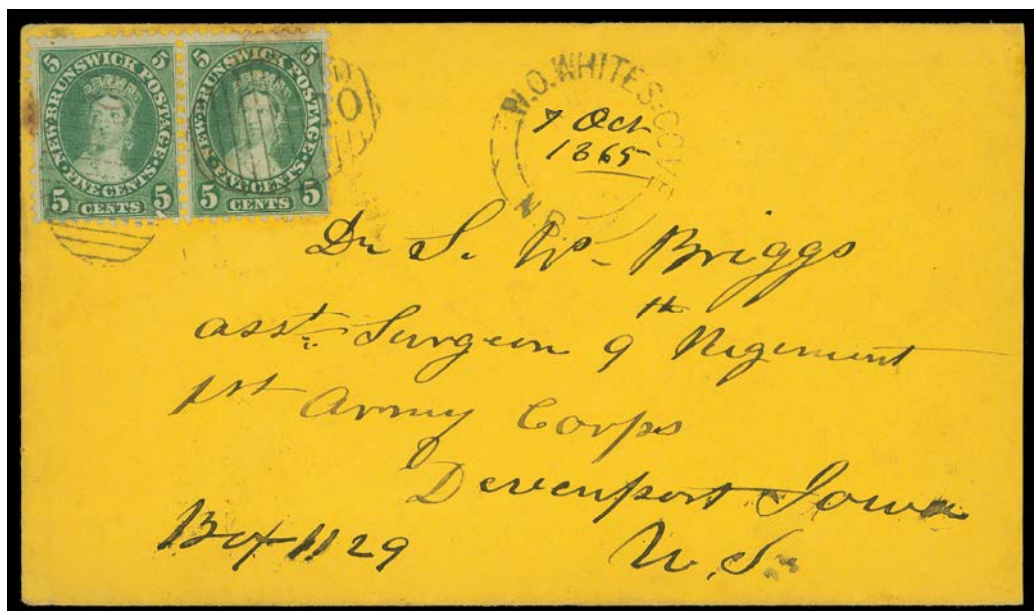 NEW BRUNSWICK POSTAGE
5 5
FIVE CENTS
5 CENTS 5
NEW BRUNSWICK POSTAGE
5 5
FIVE CENTS
5 CENTS 5
W.O. WHITES-COVE
7 Oct
1865
N.B.
Dr S. W. Briggs
asst. Surgeon 9th Regiment
1st Army Corps
Devenport Iowa
Box 1129
U.S.